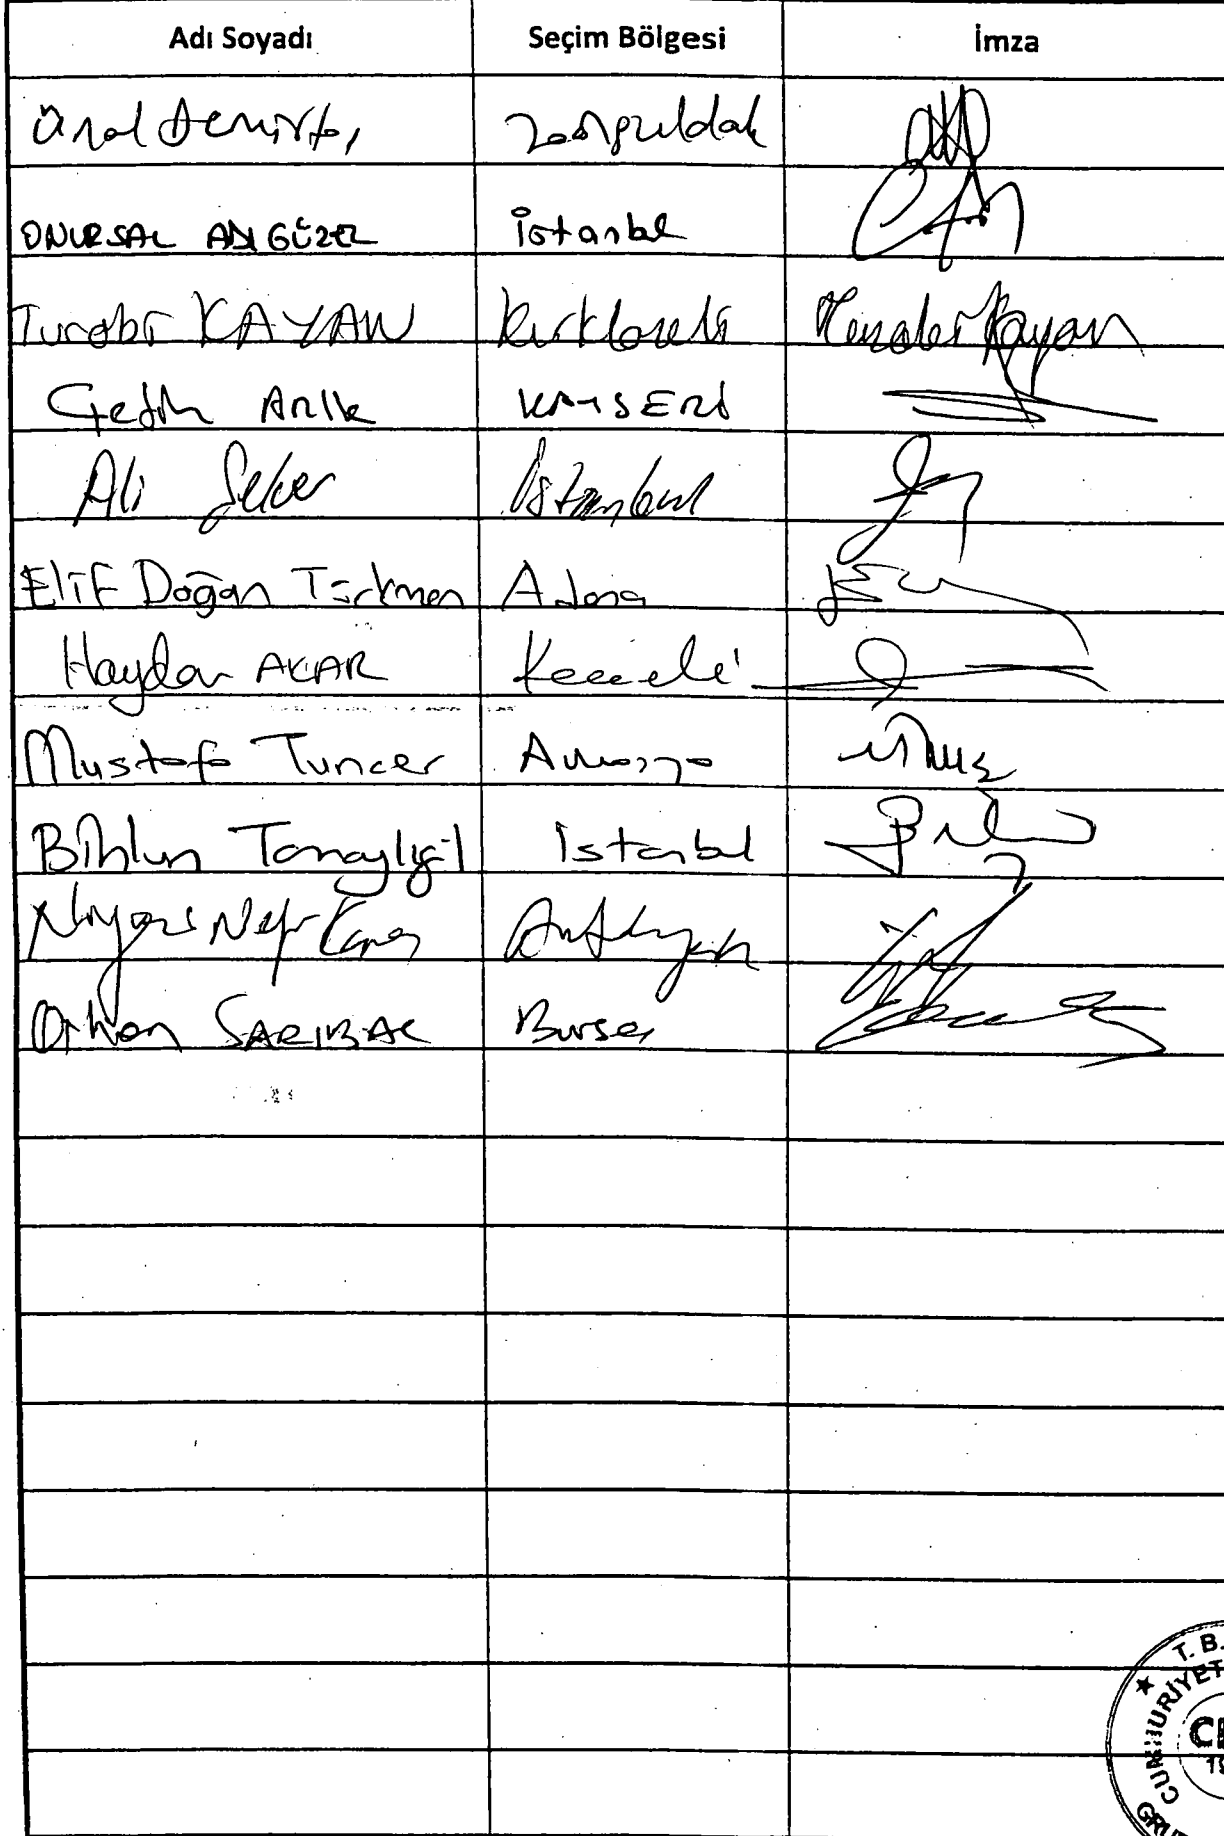 Adı Soyadı Seçim Bölgesi İmza
Ünal Demirtaş Zonguldak
ONURSAL ADIGÜZEL İstanbul
Turabi KAYAN Kırklareli Turabi Kayan
Çetin Arık KAYSERİ
Ali Şeker İstanbul
Elif Doğan Türkmen Adana
Haydar AKAR Kocaeli
Mustafa Tuncer Amasya
Bihlun Tamaylıgil İstanbul
Niyazi Nefi Kara Antalya
Orhan SARIBAL Bursa
T. B.
CUMHURİYET